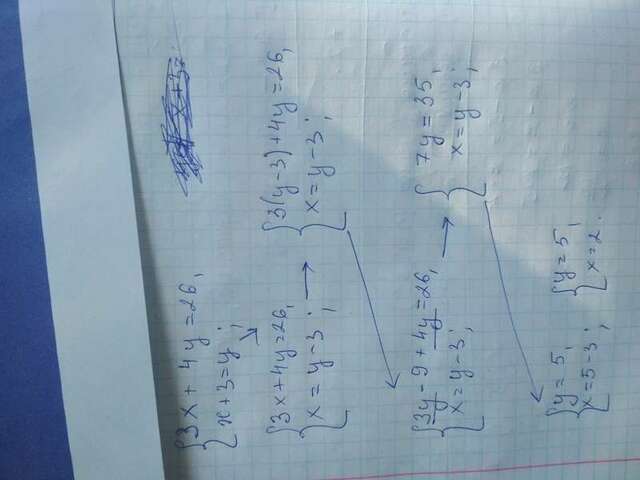 {3x + 4y = 26,
{x + 3 = y;
{3x + 4y = 26,
{x = y - 3;
→
{3(y - 3) + 4y = 26,
{x = y - 3;
{3y - 9 + 4y = 26,
{x = y - 3;
→
{7y = 35,
{x = y - 3;
{y = 5,
{x = 5 - 3;
{y = 5,
{x = 2.